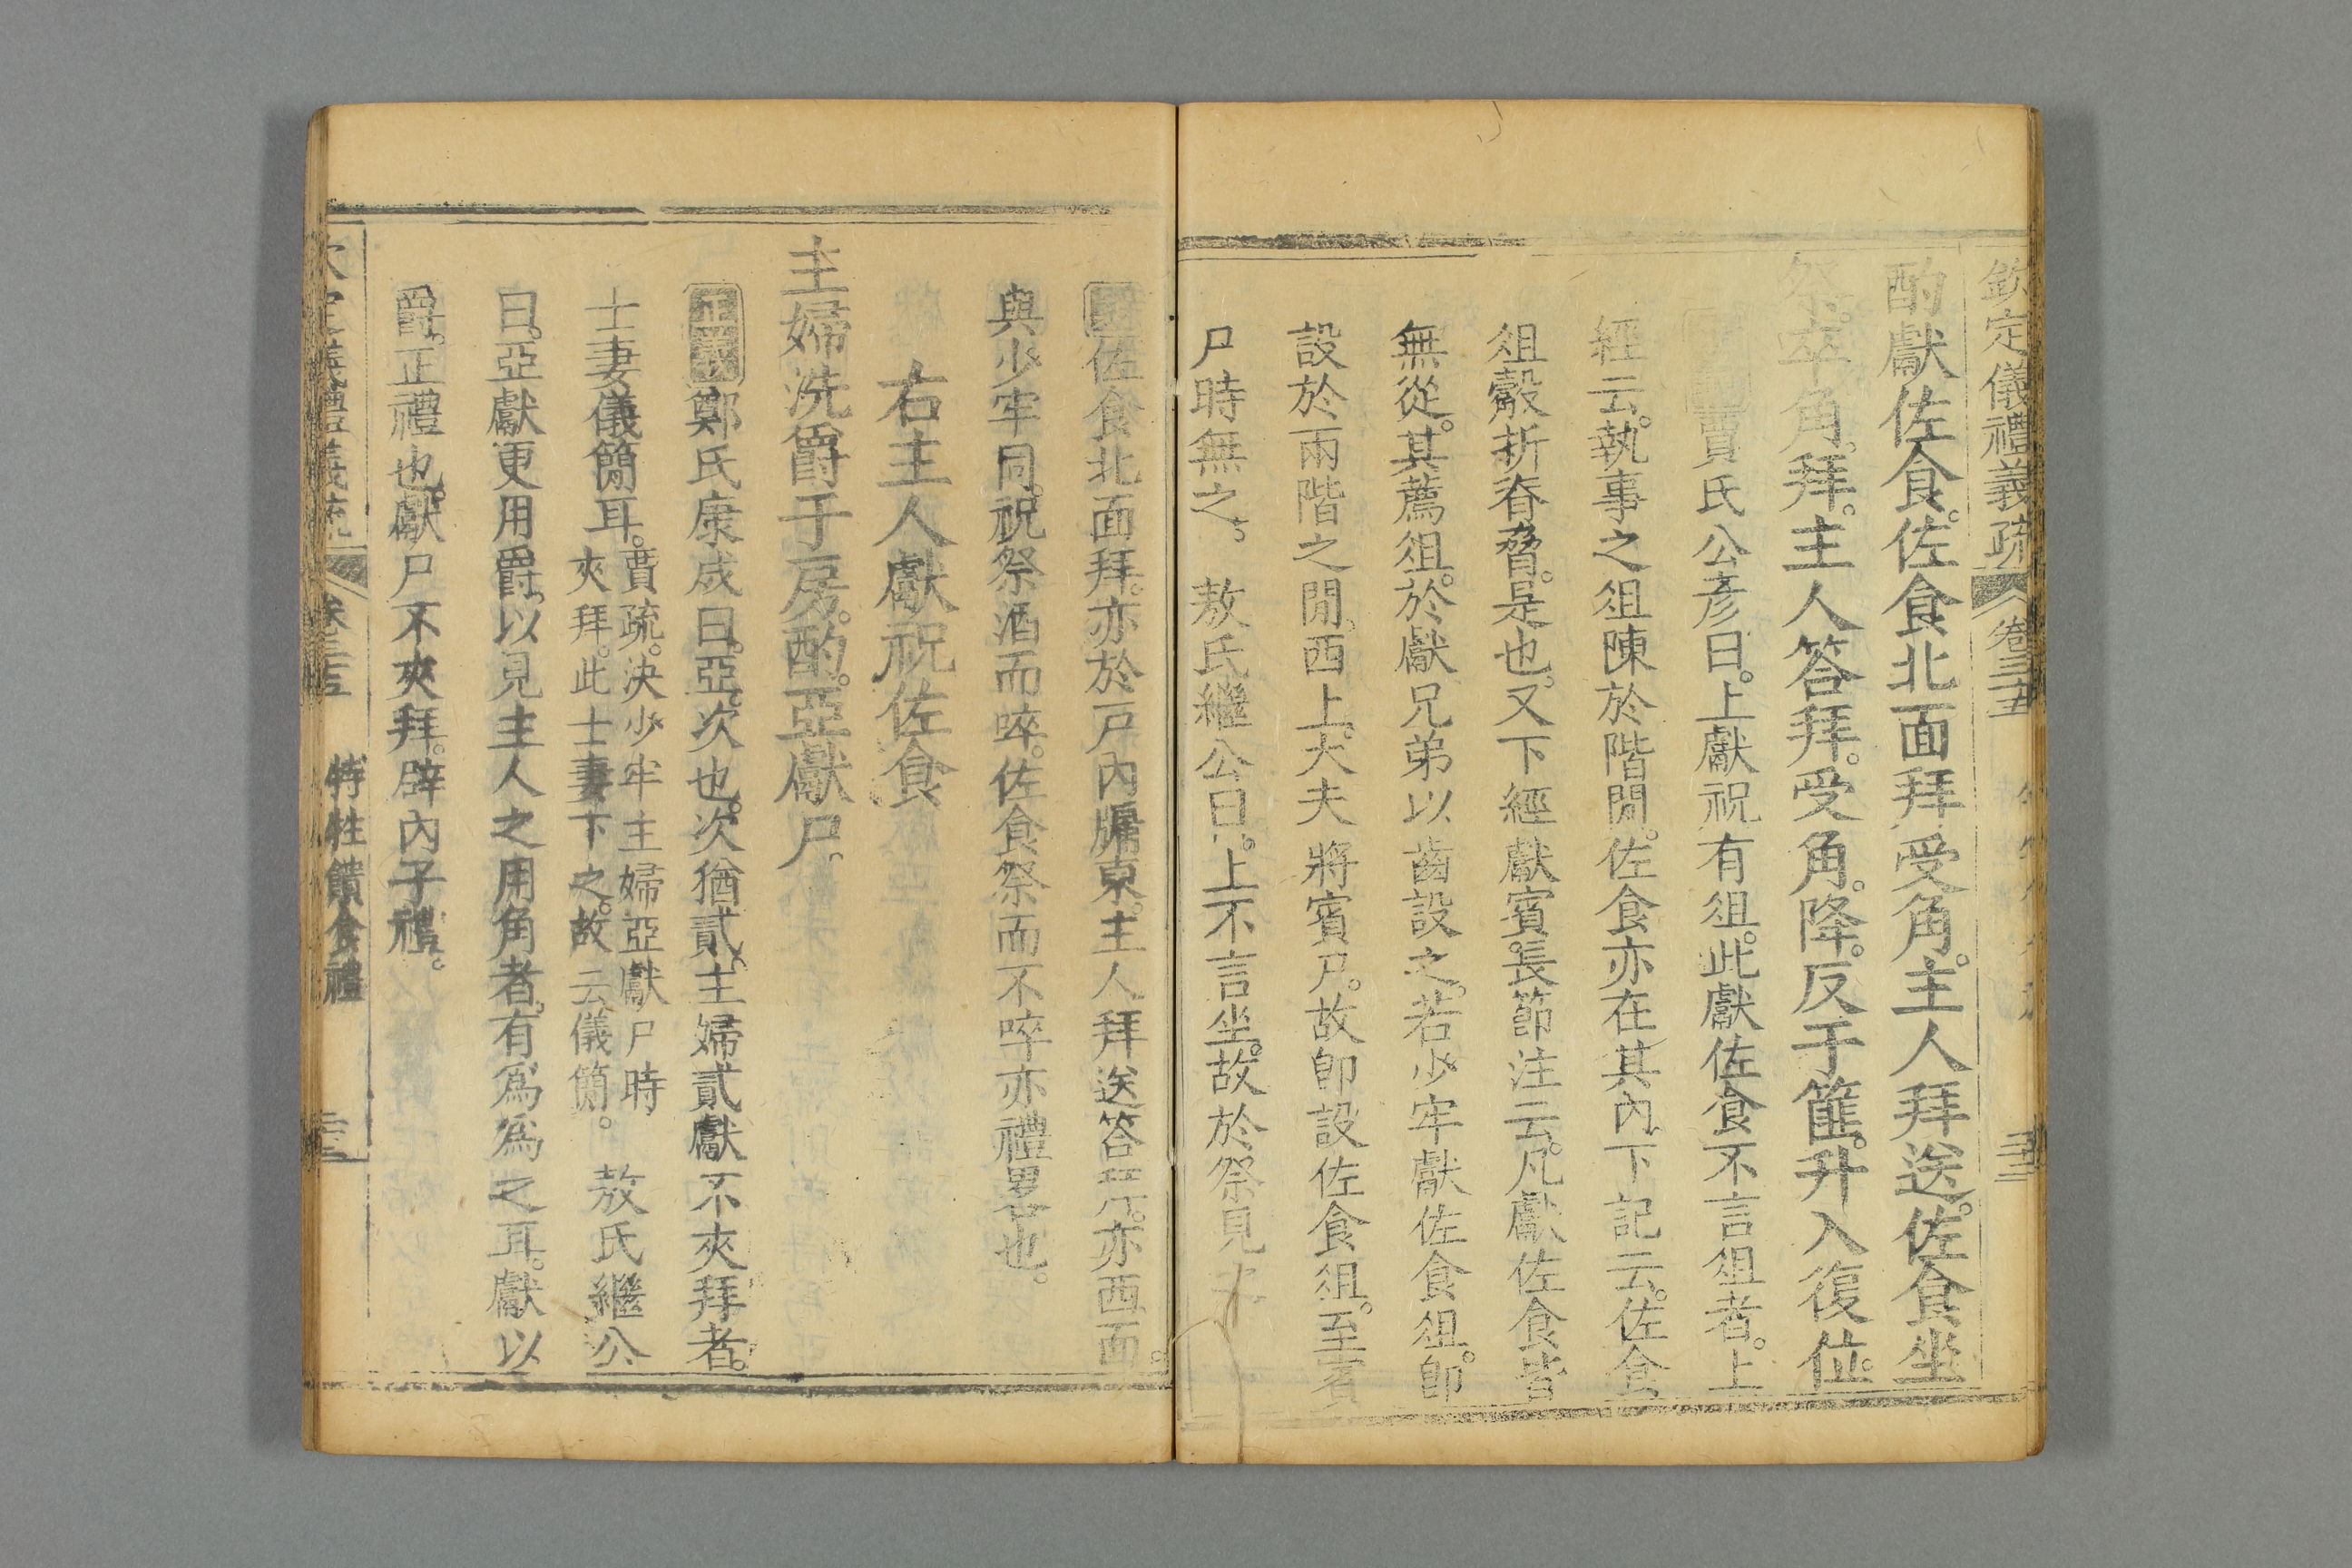 欽定儀禮義疏 卷三十五
酌獻佐食。佐食北面拜受角。主人拜送。佐食坐
祭。卒角。拜。主人答拜。受角。降。反于篚。升入復位。
賈氏公彥曰。上獻祝有俎。此獻佐食不言俎者。上
經云。執事之俎陳於階閒。佐食亦在其內。下記云。佐食
俎觳折脊脅。是也。又下經獻賓長節注云。凡獻佐食皆
無從。其薦俎。於獻兄弟以齒設之。若少牢獻佐食俎。卽
設於兩階之閒。西上。大夫將賓尸。故卽設佐食俎。至賓
尸時無之。 敖氏繼公曰。上不言坐。故於祭見
佐食北面拜。亦於戶內牖東。主人拜送答拜。亦西面。
與少牢同。祝祭酒而啐。佐食祭而不啐亦禮畧也。
右主人獻祝佐食
主婦洗爵于房。酌。亞獻尸。
正義鄭氏康成曰。亞。次也。次猶貳。主婦貳獻不夾拜者。
士妻儀簡耳。賈疏。決少牢主婦亞獻尸時
夾拜。此士妻下之。故云儀簡。 敖氏繼公
曰。亞獻更用爵。以見主人之用角者。有爲爲之耳。獻以
爵。正禮也。獻尸不夾拜。辟內子禮。
卷三十五 特牲饋食禮